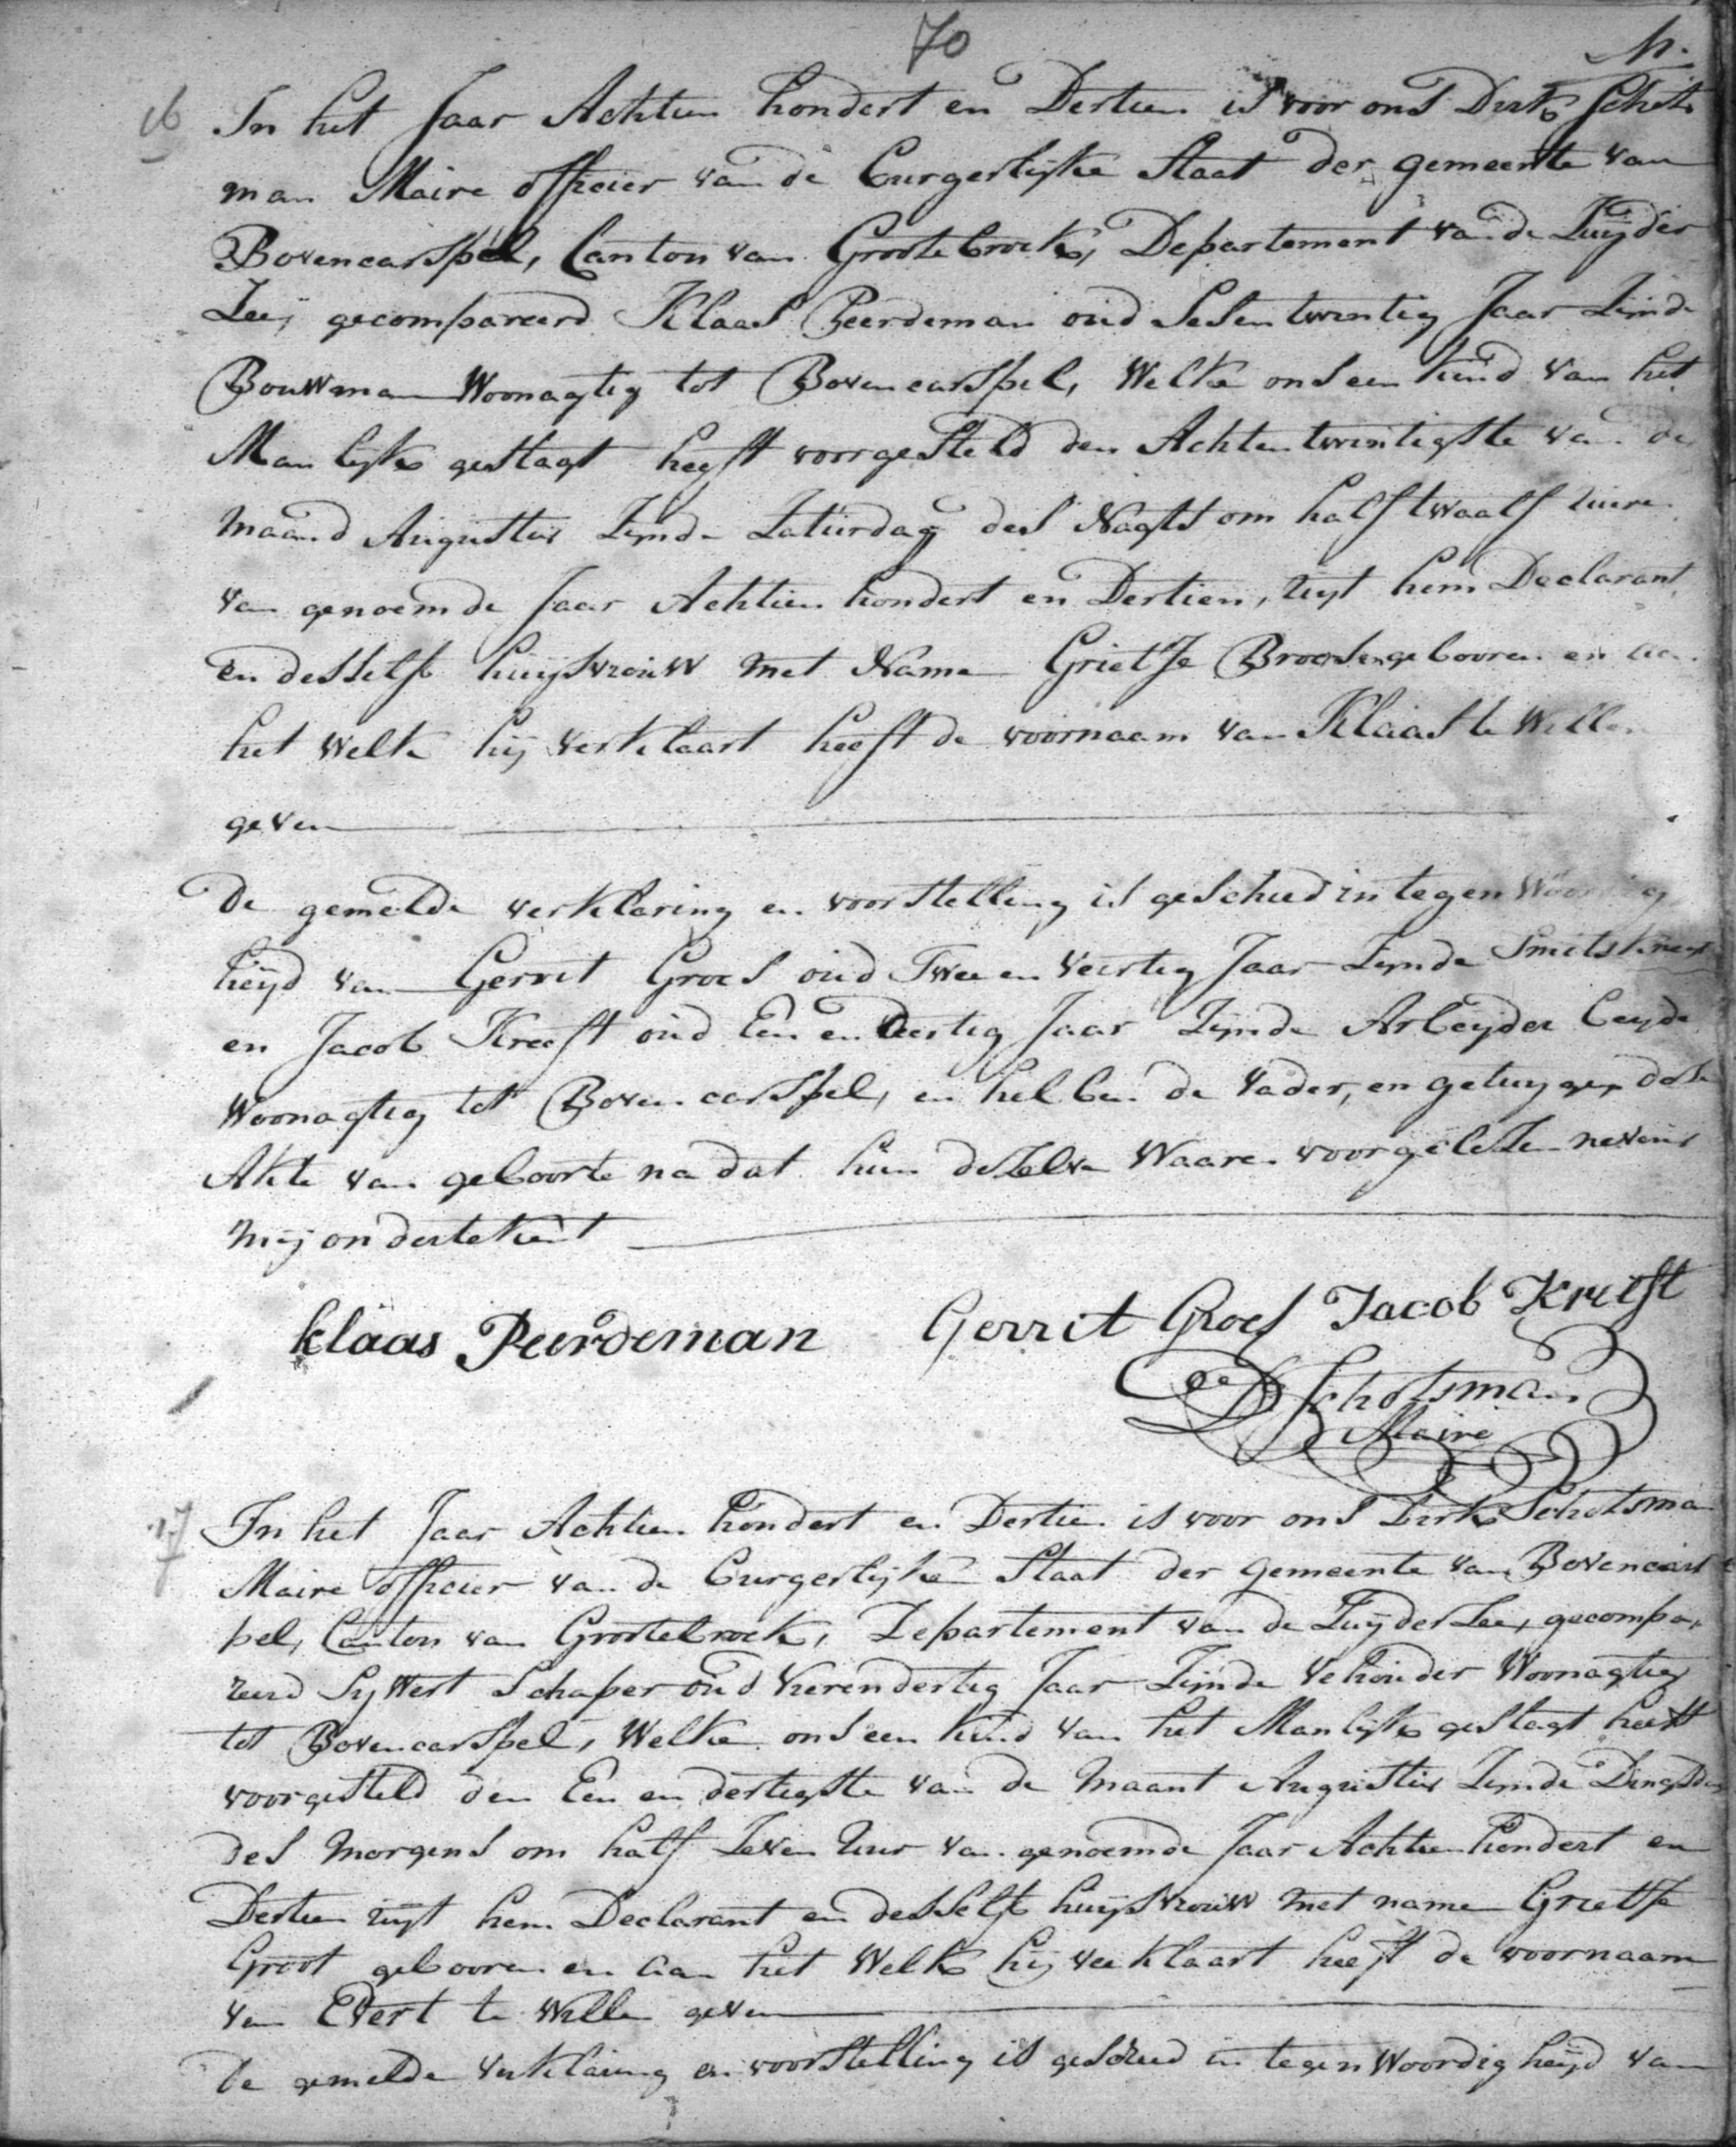 70
16 In het Jaar Achtien hondert en Dertien is voor ons Dirk Schots
man Maire officier van de Burgerlijke Staat der gemeente van
Bovencarspel, Canton van Grootebroek, Departement van de Zuyder
Zee, gecompareerd Klaas Peerdeman oud Sesentwintig Jaar Zijnde
Bouwman Woonagtig tot Bovencarspel, Welke ons een kind van het
Manlijke geslagt heeft voorgesteld den Achtentwintigste van de
maand Augustus Zijnde Zaturdag des Nagts om half twaalf uure
van genoemde Jaar Achtien hondert en Dertien, uyt hem Declarant
en desselfs huysvrouw met Name Grietje Broersen gebooren en aan
het Welke hij verklaart heeft de voornaam van Klaas te Willen
geven
De gemelde verklaring en voorstelling is geschied in tegenwoordig
heyd van Gerrit Groes oud Twee en Veertig Jaar Zijnde Smitsknegt
en Jacob Kreeft oud Een en Deertig Jaar Zijnde Arbeyder beyde
Woonagtig tot Bovencarspel, en hebben de Vader, en getuygen dese
Akte van geboorte na dat hun deselve Waaren voorgelesen nevens
mij ondertekent
klaas Peerdeman Gerrit Groes Jacob Kreeft
D Schotsman
Maire
17 In het Jaar Achtien hondert en Dertien is voor ons Dirk Schotsman
Maire officier van de Burgerlijke Staat der gemeente van Bovencars
pel, Canton van Grootebroek, Departement van de Zuyder Zee, gecompa,
reerd Sywert Schaper oud Vierendertig Jaar Zijnde Vehouder Woonagtig
tot Bovencarspel, Welke ons een kind van het Manlijke geslagt heeft
voorgesteld den Een en dertigste van de Maant Augustus Zijnde Dingsdag
des Morgens om half Zeven Uur van genoemde Jaar Achtien hondert en
Dertien uyt hem Declarant en desselfs huysvrouw met name Grietje
Groot gebooren en aan het Welk hij verklaart heeft de voornaam
van Evert te Willen geven
De gemelde verklaring en voorstelling is geschied in tegenwoordigheyd van